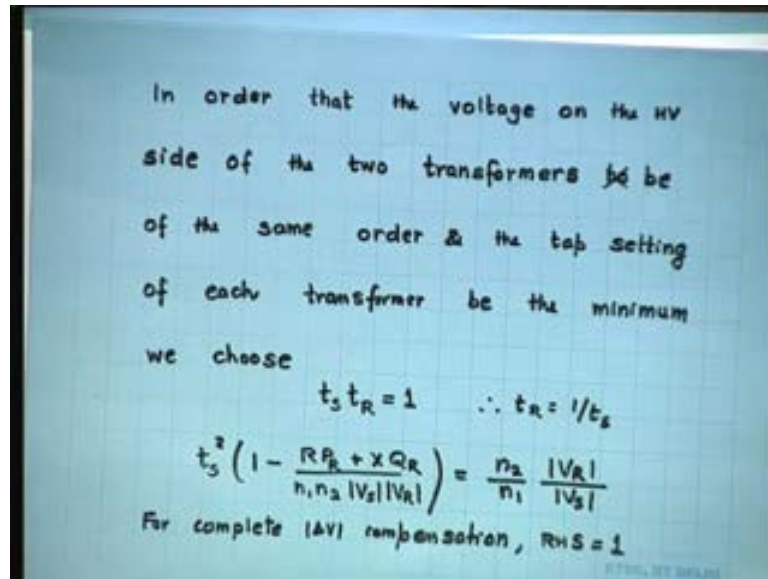 In order that the voltage on the HV
side of the two transformers be
of the same order & the tap setting
of each transformer be the minimum
we choose
t_s t_R = 1 ∴ t_R = 1/t_s
t_s² (1 - (R P_R + X Q_R) / (n₁ n₂ |V_S| |V_R|)) = n₂/n₁ |V_R|/|V_S|
For complete |ΔV| compensation, RHS = 1